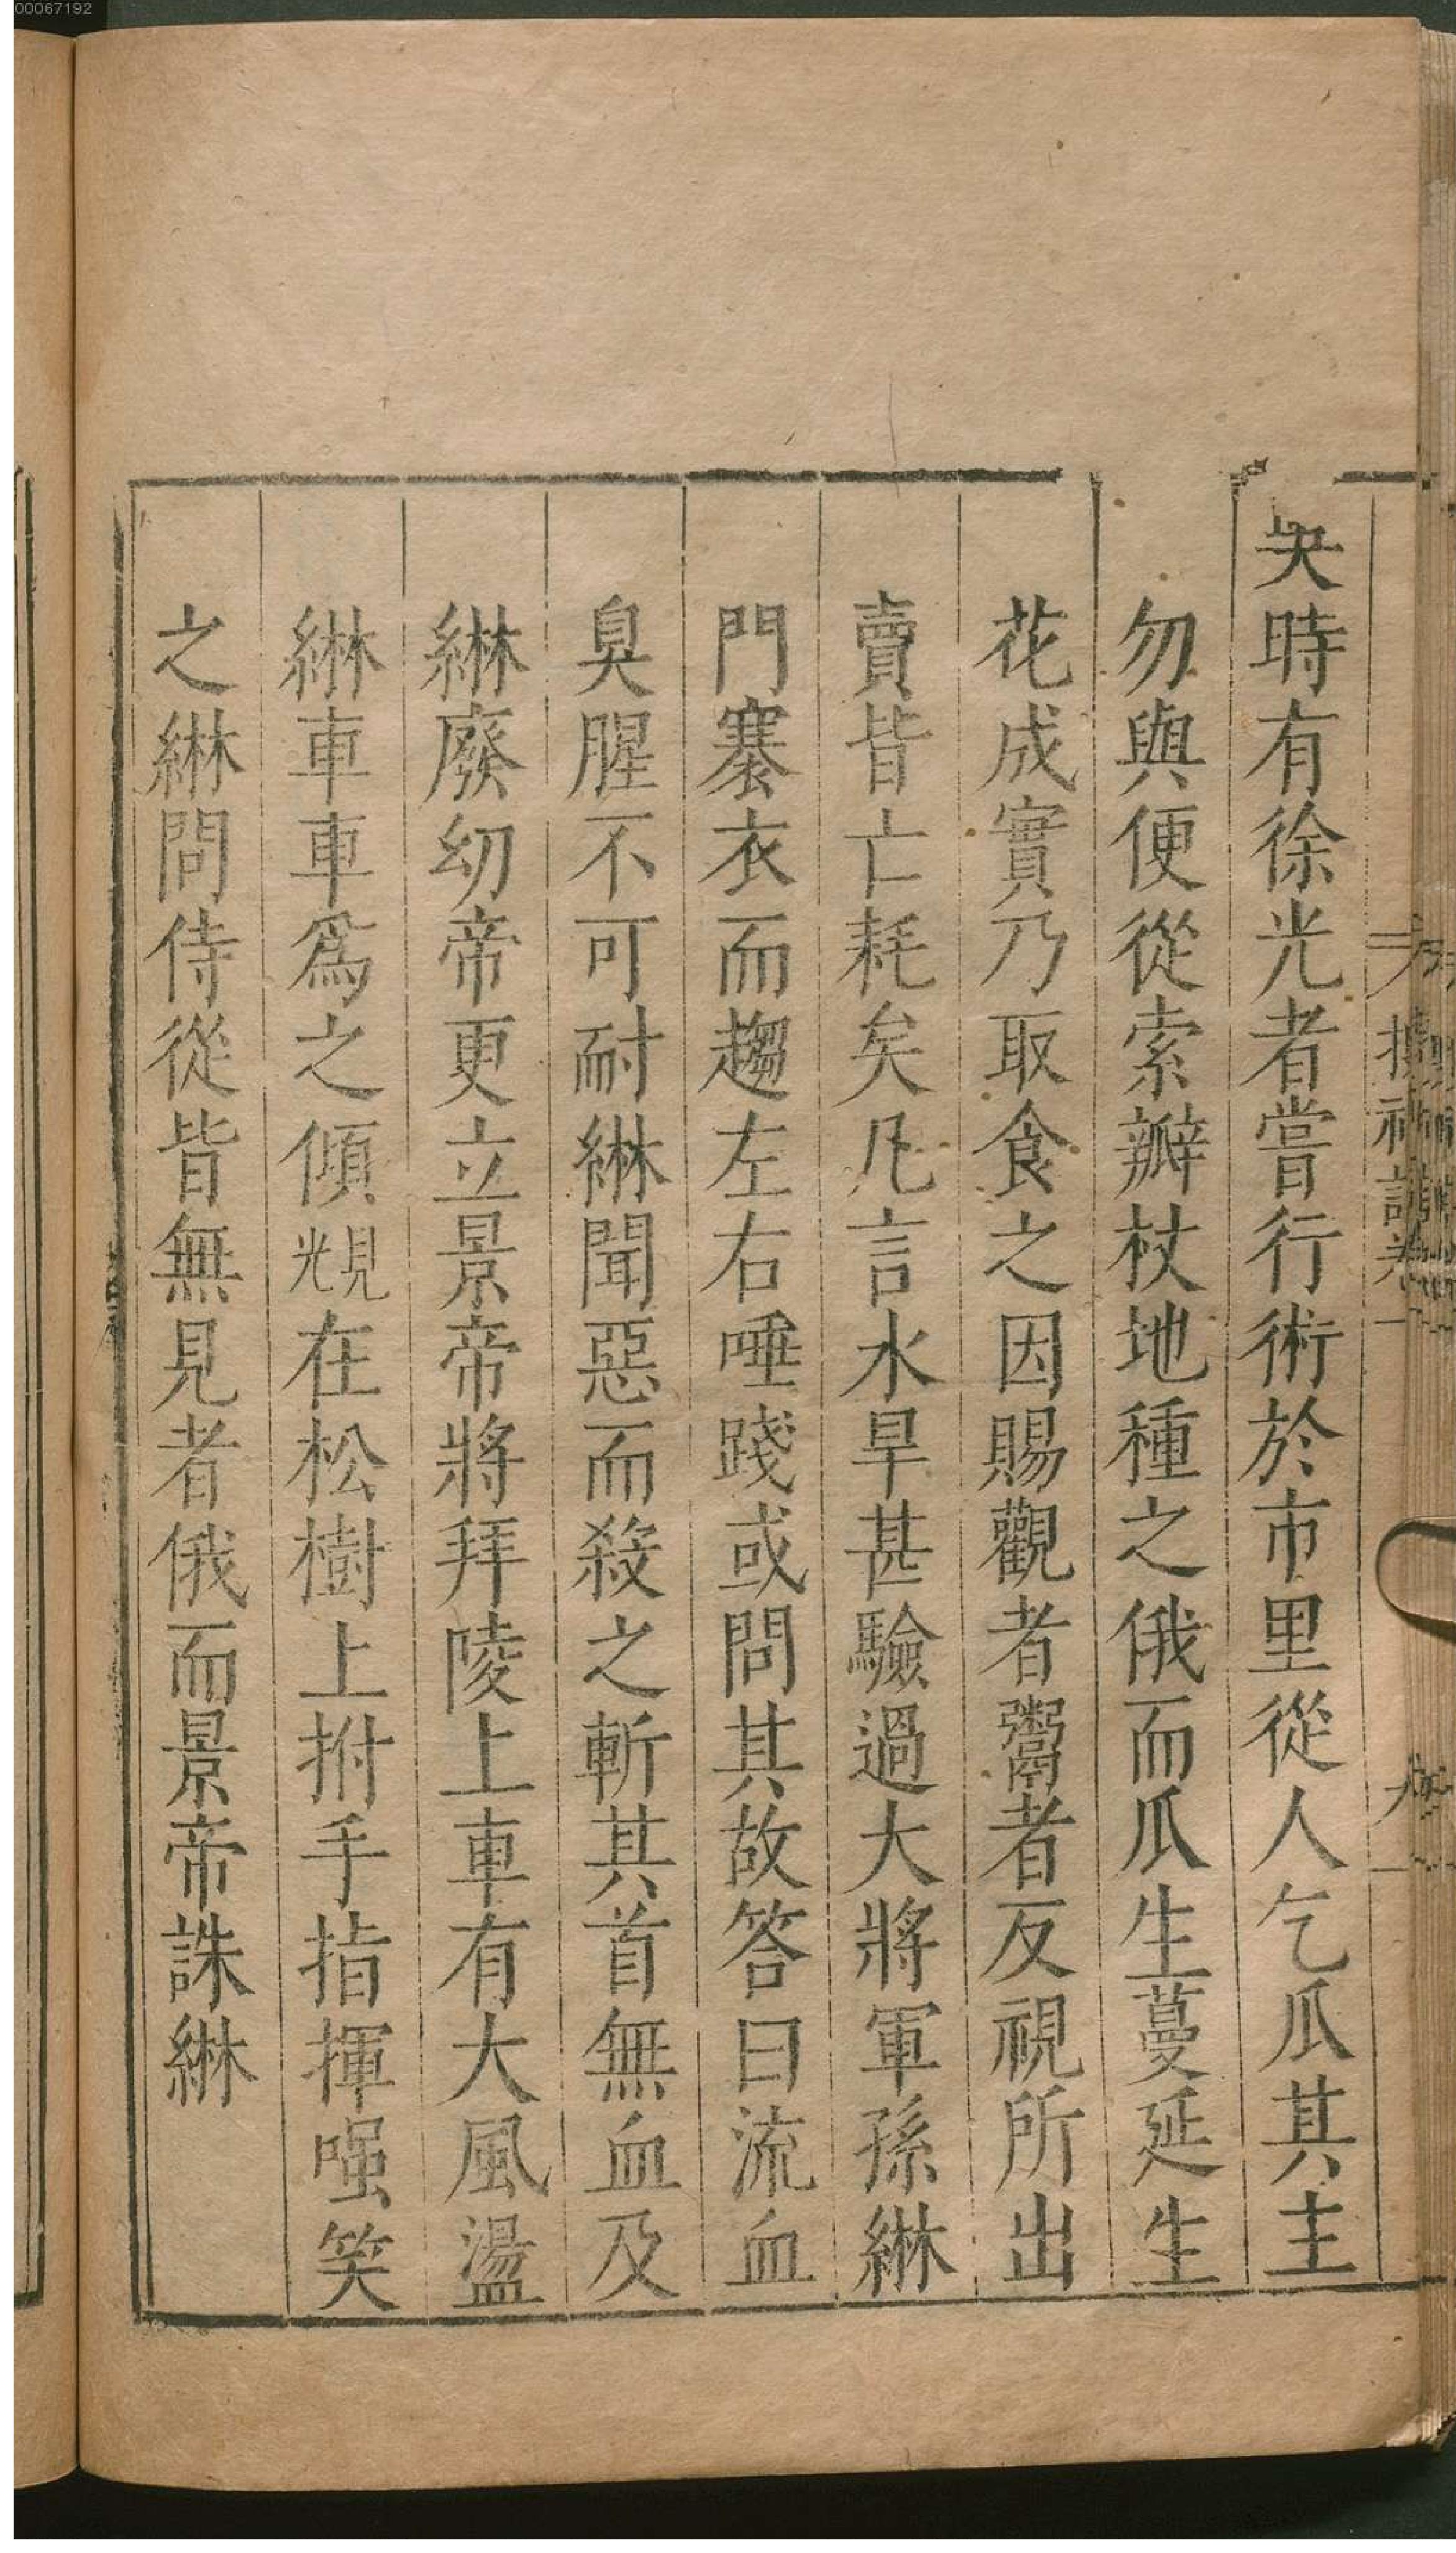 吳時有徐光者嘗行術於市里從人乞瓜其主
勿與便從索瓣杖地種之俄而瓜生蔓延生
花成實乃取食之因賜觀者鬻者反視所出
賣皆亡耗矣凡言水旱甚驗過大將軍孫綝
門褰衣而趨左右唾踐或問其故答曰流血
臭腥不可耐綝聞惡而殺之斬其首無血及
綝廢幼帝更立景帝將拜陵上車有大風盪
綝車車爲之傾見光在松樹上拊手指揮嗤笑
之綝問侍從皆無見者俄而景帝誅綝
搜神記卷一
00067192